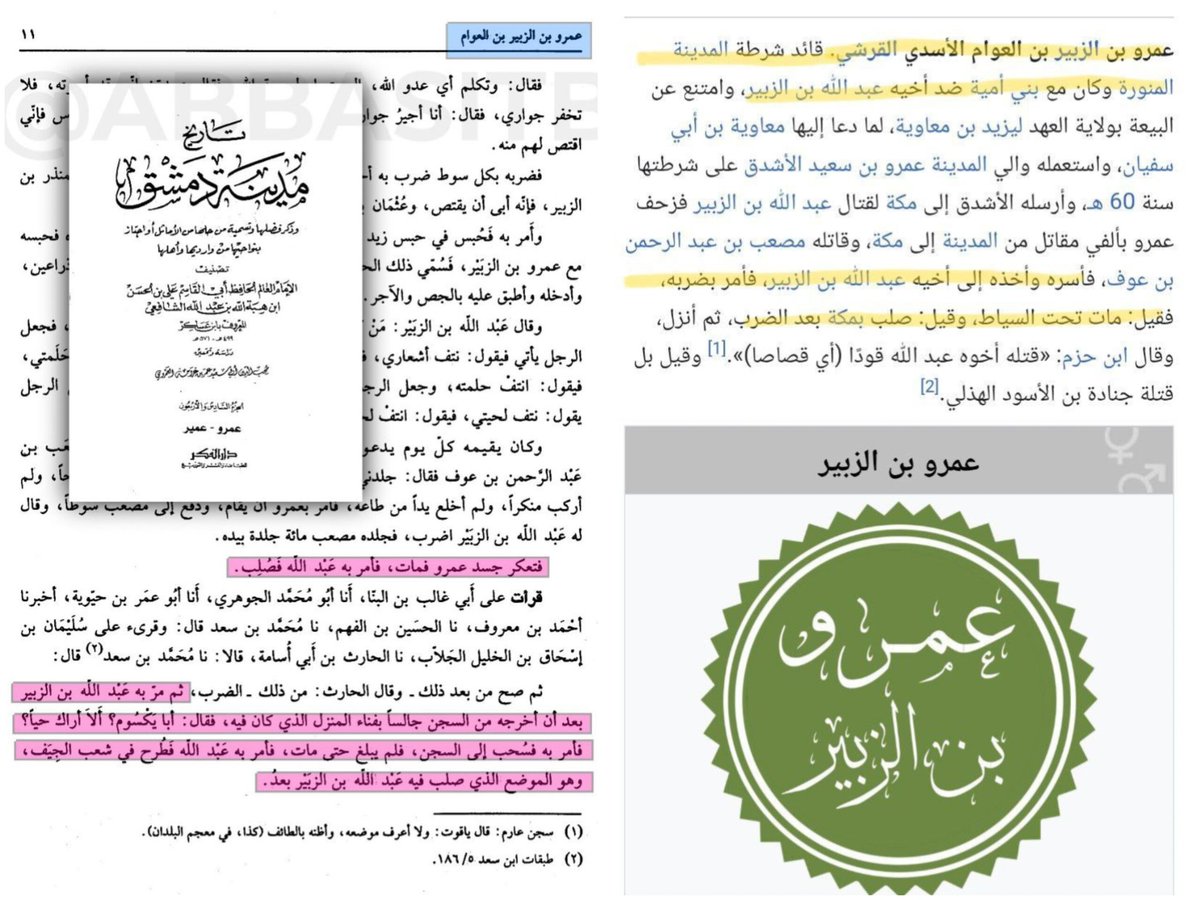 عمرو بن الزبير بن العوام
١١
فقال: وتكلم أي عدو الله،
تخفر جواري، فقال: أنا أجيرُ جوار
اقتص لهم منه.
فضربه بكل سوط ضرب به
الزبير، فإنّه أبى أن يقتص، وعُثْمَان
وأمر به فَحُبس في حبس زيد
مع عمرو بن الزبَيْر، فَسُمّي ذلك
وأدخله وأطبق عليه بالجص والآجر.
وقال عَبْد الله بن الزبَيْر:
الرجل يأتي فيقول: نتف أشعاري،
فيقول: انتفْ حلمته، وجعل
يقول: نتف لحيتي، فيقول: انتفْ
وكان يقيمه كلّ يوم
عَبْد الرَّحمن بن عوف فقال:
أركب منكراً، ولم أخلع يداً من طاعة، فأمر بعمرو أن يقام، ودفع إلى مصعب سوطاً، وقال
له عَبْد الله بن الزبَيْر اضرب، فجلده مصعب مائة جلدة بيده.
فتعكر جسد عمرو فمات، فأمر به عَبْد اللّه فَصُلِب.
قرأت على أَبي غالب بن البنّا، أَنا أَبُو مُحَمَّد الجوهري، أَنا أَبُو عمَر بن حيّوية، أخبرنا
أَحْمَد بن معروف، نا الحسَين بن الفهم، نا مُحَمَّد بن سعد قال: وقرىء على سُلَيْمَان بن
إسْحَاق بن الخليل الجَلاّب، نا الحارث بن أَبي أُسامة، قالا: نا مُحَمَّد بن سعد(٢) قال:
ثم صح من بعد ذلك ـ وقال الحارث: من ذلك ـ الضرب، ثم مرّ به عَبْد اللّه بن الزبير
بعد أن أخرجه من السجن جالساً بفناء المنزل الذي كان فيه، فقال: أبا يَكْسُوم؟ ألاَ أراك حياً؟
فأمر به فسُحب إلى السجن، فلم يبلغ حتى مات، فأمر به عَبْد الله فَطُرح في شعب الجِيَف،
وهو الموضع الذي صلب فيه عَبْد اللّه بن الزبَيْر بعدُ.
(١) سجن عارم: قال ياقوت: ولا أعرف موضعه، وأظنه بالطائف (كذا، في معجم البلدان).
(٢) طبقات ابن سعد ٥/ ١٨٦.
تاريخ
مدينة دمشق
وذكر فضلها وتسمية من حلها من الأماثل أو اجتاز
بنواحيها من وارديها وأهلها
تصنيف
الإمام العالم الحافظ أبي القاسم علي بن الحسن
ابن هبة الله بن عبد الله الشافعي
المعروف بابن عساكر
٤٩٩ هـ - ٥٧١ هـ
دراسة وتحقيق
محب الدين أبي سعيد عمر بن غرامة العمروي
الجزء السادس والأربعون
عمرو - عمير
دار الفكر
عمرو بن الزبير بن العوام الأسدي القرشي. قائد شرطة المدينة
المنورة وكان مع بني أمية ضد أخيه عبد الله بن الزبير، وامتنع عن
البيعة بولاية العهد ليزيد بن معاوية، لما دعا إليها معاوية بن أبي
سفيان، واستعمله والي المدينة عمرو بن سعيد الأشدق على شرطتها
سنة 60 هـ، وأرسله الأشدق إلى مكة لقتال عبد الله بن الزبير فزحف
عمرو بألفي مقاتل من المدينة إلى مكة، وقاتله مصعب بن عبد الرحمن
بن عوف، فأسره وأخذه إلى أخيه عبد الله بن الزبير، فأمر بضربه،
فقيل: مات تحت السياط، وقيل: صلب بمكة بعد الضرب، ثم أنزل،
وقال ابن حزم: «قتله أخوه عبد الله قودًا (أي قصاصا)».[1] وقيل بل
قتلة جنادة بن الأسود الهذلي.[2]
عمرو بن الزبير
عمرو
بن الزبير